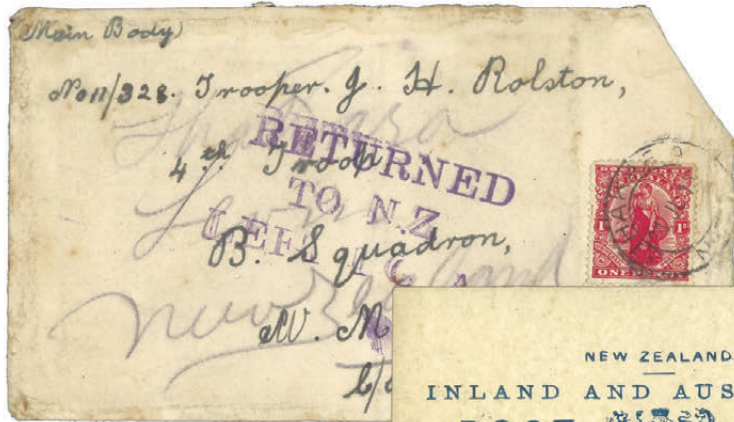 Main Body)
No 11/328. Trooper. J. H. Rolston,
4th Troop
B. Squadron,
W. M
c/o
RETURNED
TO N.Z
LEFT
New Zealand
ONE PENNY
NEW ZEALAND
INLAND AND AUS
POST